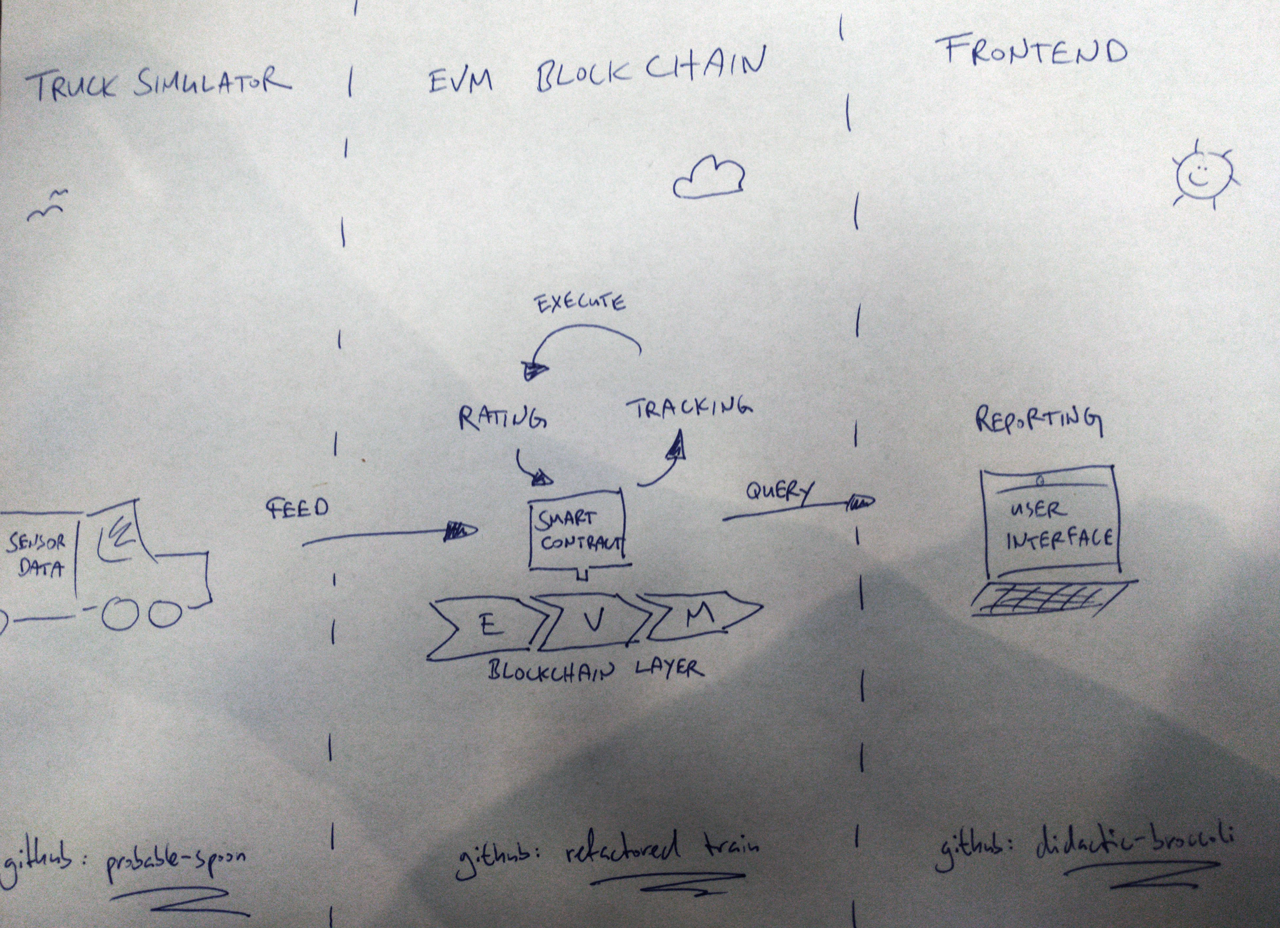 TRUCK SIMULATOR
EVM BLOCKCHAIN
FRONTEND
EXECUTE
RATING
TRACKING
REPORTING
FEED
QUERY
SENSOR
DATA
SMART
CONTRACT
USER
INTERFACE
E V M
BLOCKCHAIN LAYER
github: probable-spoon
github: refactored train
github: didactic-broccoli